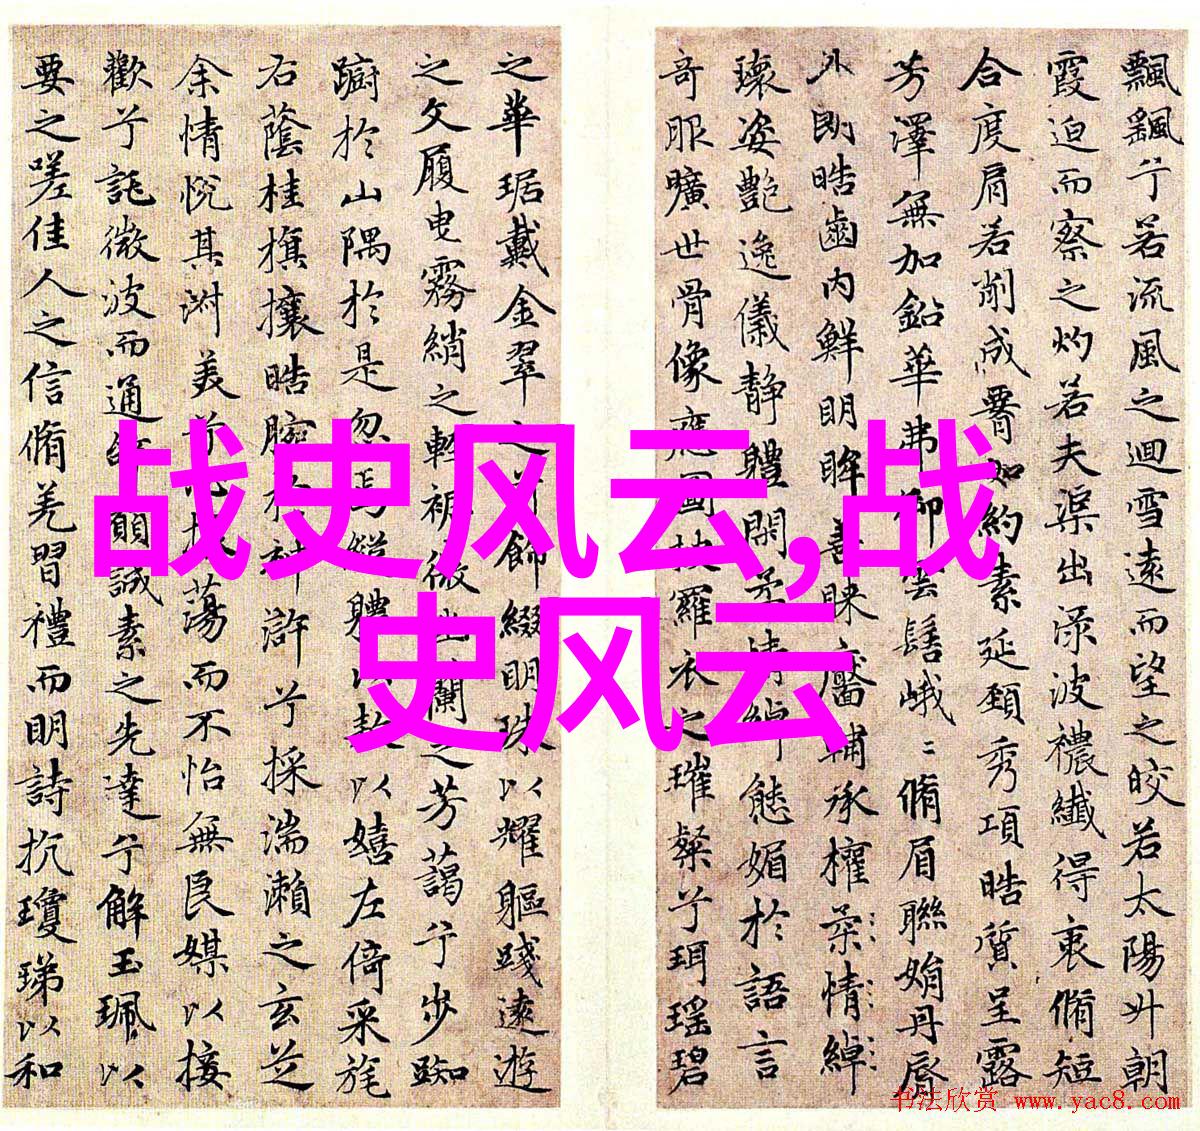 飄飖兮若流風之迴雪遠而望之皎若太陽升朝
霞迫而察之灼若夫渠出淥波襛纖得衷脩短
合度肩若削成署如約素延頸秀項皓質呈露
芳澤無加鉛華弗御雲髻峨〻脩眉聯娟丹脣
外朗皓齒內鮮明眸善睞靨輔承權柔情綽
瓌姿艷逸儀靜體閑柔情綽態媚於語言
奇服曠世骨像應圖披羅衣之璀粲兮珥瑤碧
之華琚戴金翠之首飾綴明珠以耀軀踐遠遊
之文履曳霧綃之輕裾微幽蘭之芳藹兮步踟
躕於山隅於是忽焉縱體以遨以嬉左倚采旄
右蔭桂旗攘皓腕於神滸兮採湍瀨之玄芝
余情悅其淑美兮心振蕩而不怡無良媒以接
歡兮託微波而通辭願誠素之先達兮解玉珮以
要之嗟佳人之信脩羌習禮而明詩抗瓊珶以和
战史风云,战
史风云
书法欣赏 www.yac8.com